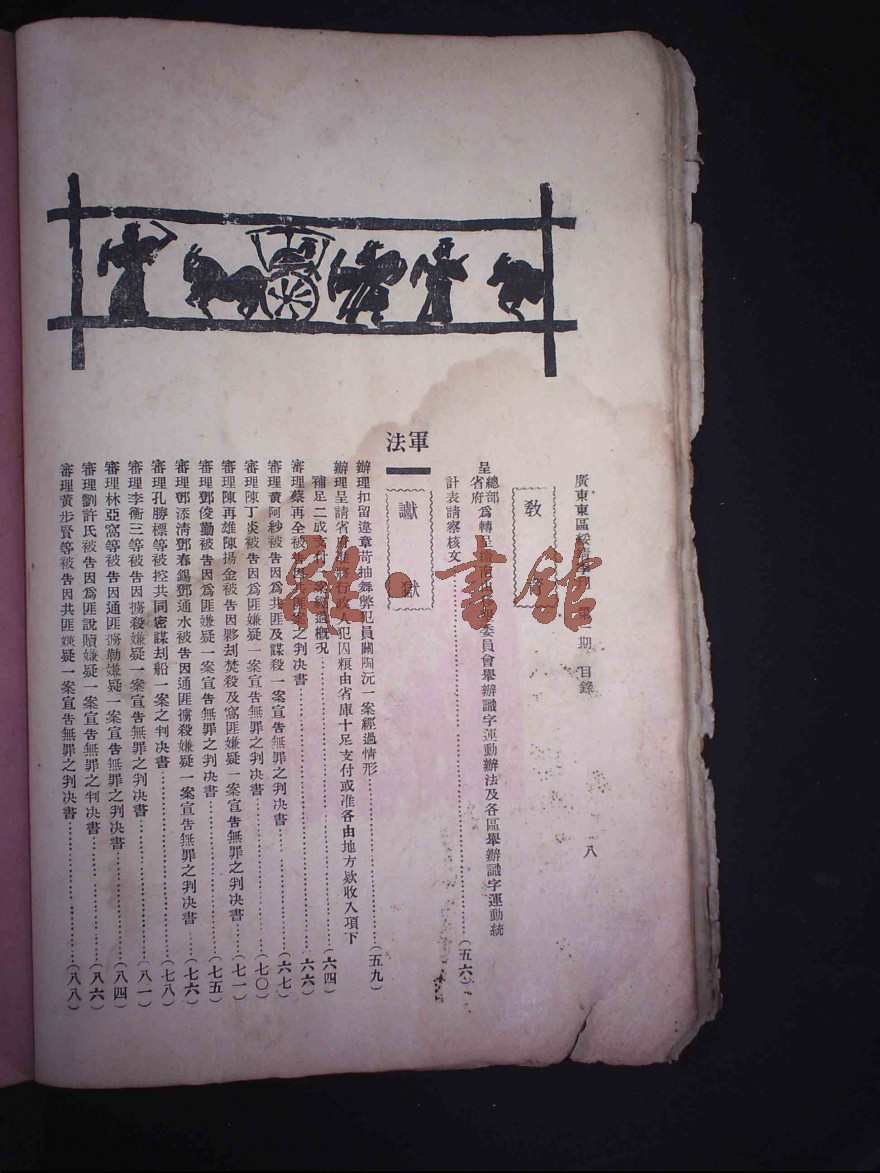 廣東東區綏靖 刊 第 期 目錄
八
教育
呈總部省府為轉呈 南山 委員會舉辦識字運動辦法及各區舉辦識字運動統
計表請察核文…………(五六)
軍法
讞獄
辦理扣留違章苛抽舞弊犯員關陶沅一案經過情形…………(五九)
辦理呈請省府 行政人犯囚糧由省庫十足支付或准各由地方欵收入項下
補足二成支付一案經過概況…………(六四)
審理蔡再全被告因共匪案之判決書…………(六六)
審理黃阿紗被告因為共匪及謀殺一案宣告無罪之判決書…………(六七)
審理陳丁炎被告因為匪嫌疑一案宣告無罪之判決書…………(七〇)
審理陳再雄陳揚金被告因夥刦焚殺及窩匪嫌疑一案宣告無罪之判決書…………(七一)
審理鄧俊勤被告因為匪嫌疑一案宣告無罪之判決書…………(七五)
審理鄧添淸鄧春錫鄧通水被告因通匪擄殺嫌疑一案宣告無罪之判決書…………(七六)
審理孔勝標等被控共同密謀刦船一案之判決書…………(七八)
審理李衡三等被告因擄殺嫌疑一案宣告無罪之判決書…………(八一)
審理林亞窩等被告因通匪擄勒嫌疑一案宣告無罪之判決書…………(八四)
審理劉許氏被告因為匪說贖嫌疑一案宣告無罪之判決書…………(八六)
審理黃步賢等被告因共匪嫌疑一案宣告無罪之判決書…………(八八)
書館